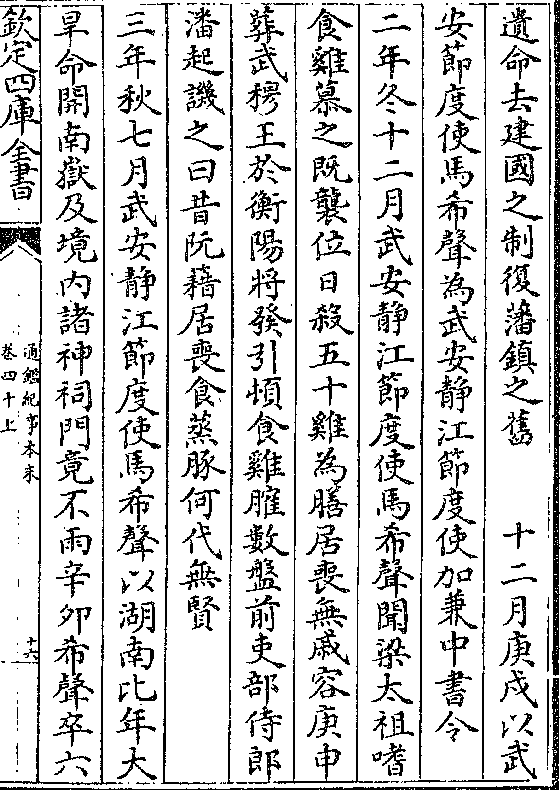 遺命去建國之制復藩鎮之舊　　十二月庚戍以武
安節度使馬希聲為武安静江節度使加兼中書令
二年冬十二月武安静江節度使馬希聲聞梁太祖嗜
食雞慕之既襲位日殺五十雞為膳居喪無戚容庚申
葬武穆王於衡陽將發引頃食雞臛數盤前吏部侍郎
潘起譏之曰昔阮籍居喪食蒸豚何代無賢
三年秋七月武安静江節度使馬希聲以湖南比年大
旱命開南嶽及境内諸神祠門竟不雨辛卯希聲卒六
欽定四庫全書
通鑑紀事本末
卷四十上
十六